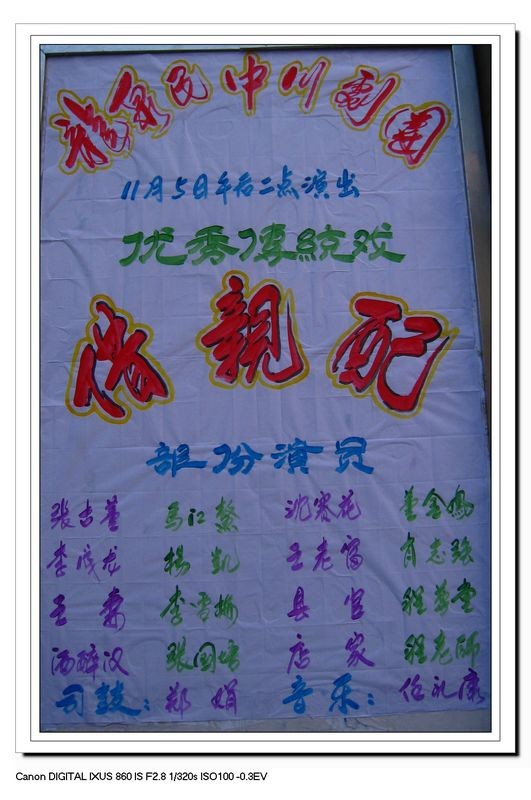 龍泉民中川劇團
11月5日午后二点演出
优秀傳統戏
借親配
部份演员
張古董 馬江鰲 沈賽花 董金鳳
李成龙 楊凯 王老富 肖志強
王 李雪梅 县官 程學奎
酒醉汉 張国培 店家 程老师
司鼓：郑娟 音乐：伍礼康
Canon DIGITAL IXUS 860 IS F2.8 1/320s ISO100 -0.3EV